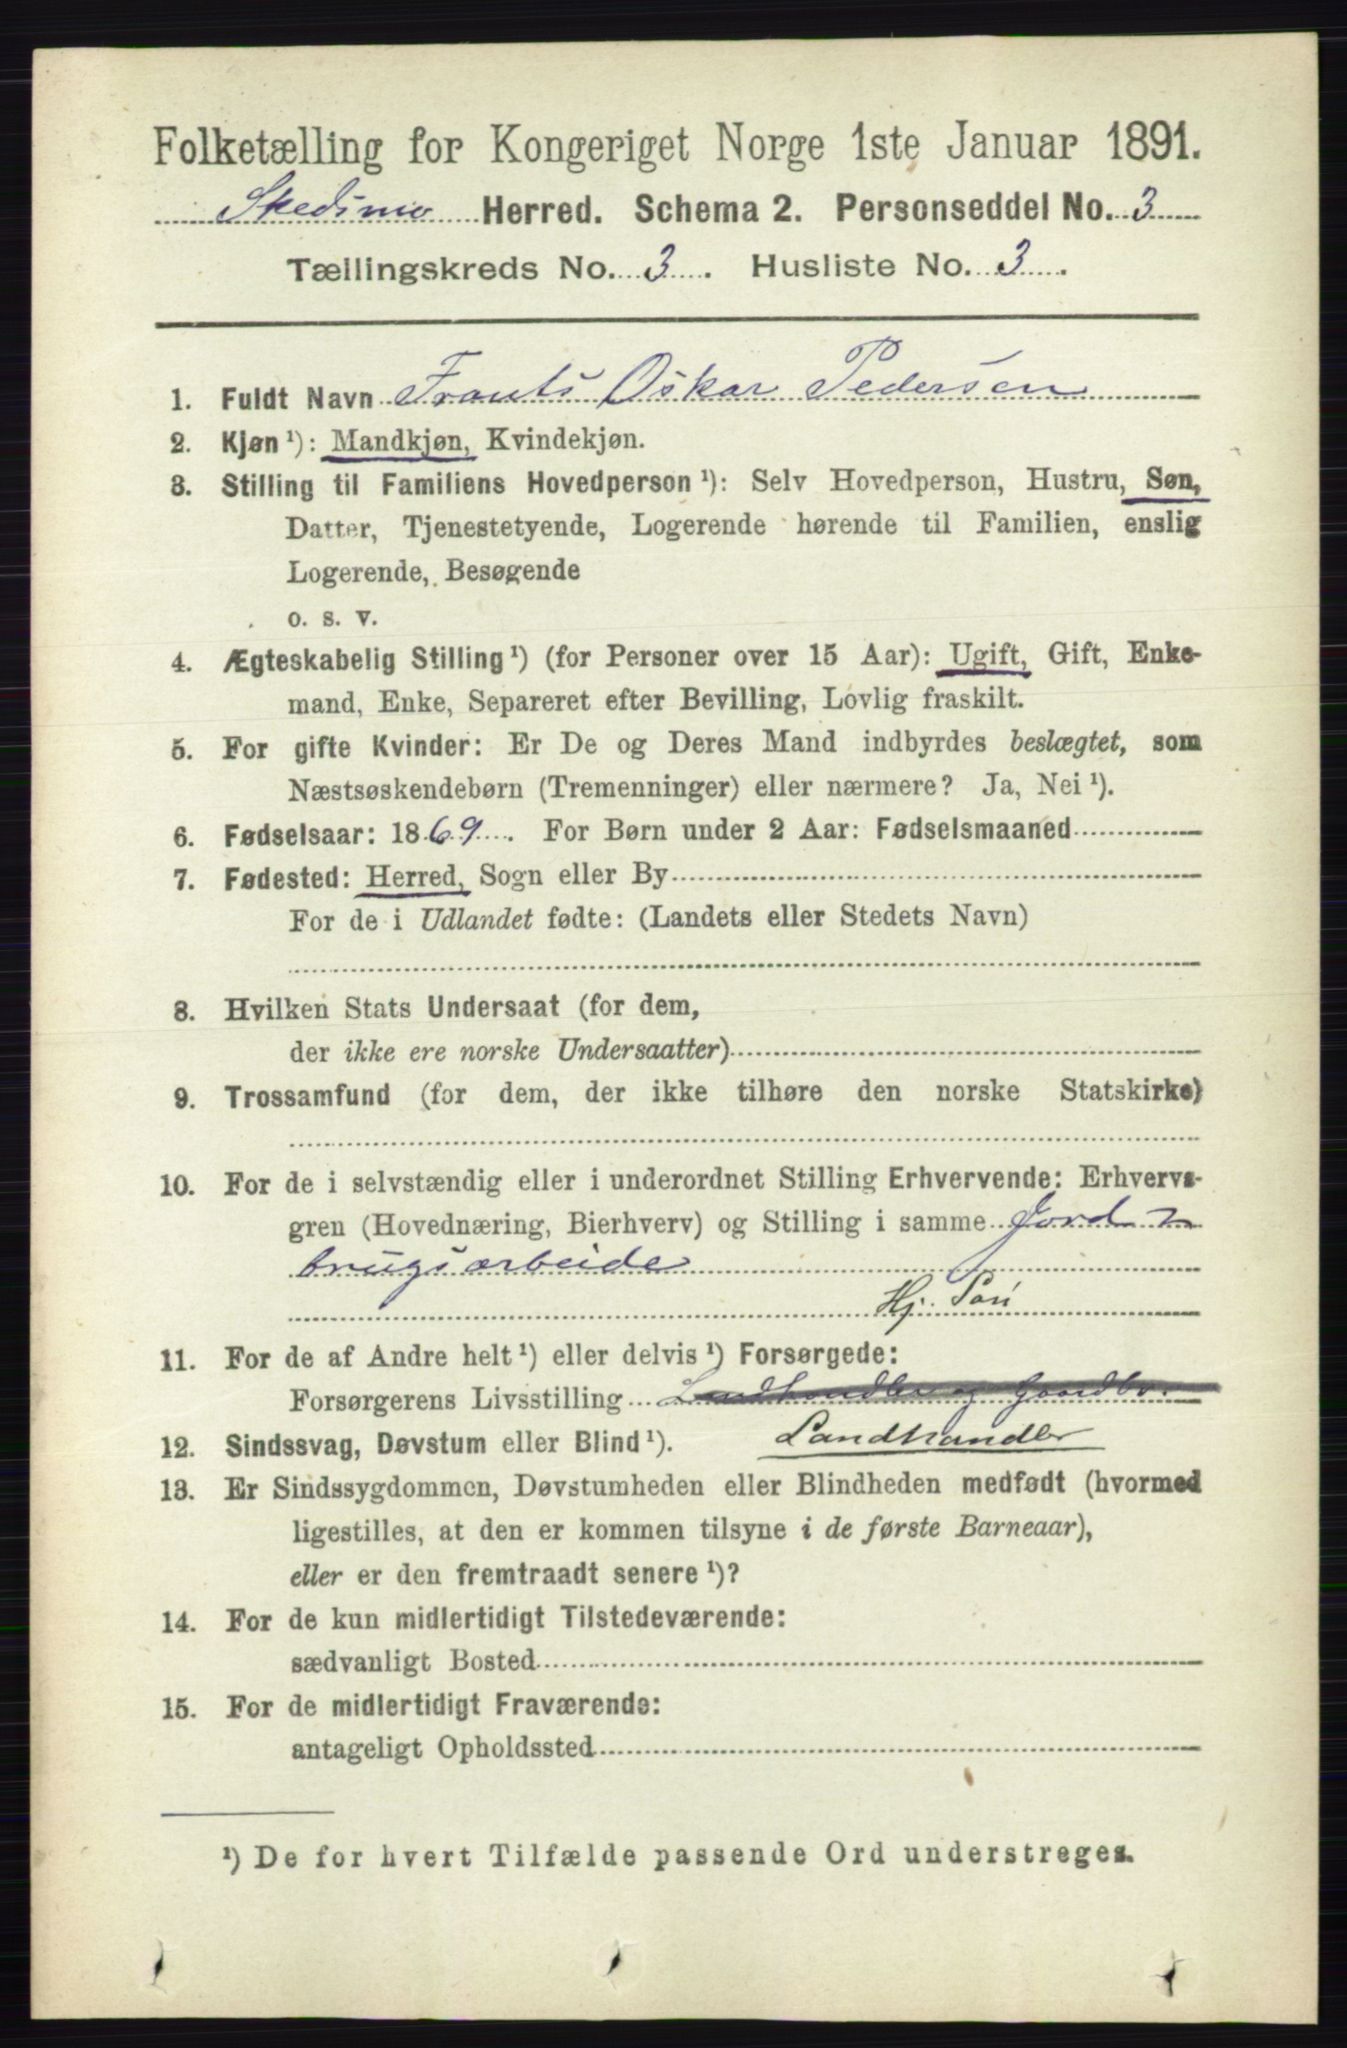 Folketælling for Kongeriget Norge 1ste Januar 1891.
Skedsmo Herred. Schema 2. Personseddel No. 3
Tællingskreds No. 3. Husliste No. 3.
1. Fuldt Navn Frants Oskar Pedersen
2. Kjøn ¹): Mandkjøn, Kvindekjøn.
3. Stilling til Familiens Hovedperson ¹): Selv Hovedperson, Hustru, Søn,
Datter, Tjenestetyende, Logerende hørende til Familien, enslig
Logerende, Besøgende
o. s. v.
4. Ægteskabelig Stilling ¹) (for Personer over 15 Aar): Ugift, Gift, Enke-
mand, Enke, Separeret efter Bevilling, Lovlig fraskilt.
5. For gifte Kvinder: Er De og Deres Mand indbyrdes beslægtet, som
Næstsøskendebørn (Tremenninger) eller nærmere? Ja, Nei ¹).
6. Fødselsaar: 1869. For Børn under 2 Aar: Fødselsmaaned
7. Fødested: Herred, Sogn eller By
For de i Udlandet fødte: (Landets eller Stedets Navn)
8. Hvilken Stats Undersaat (for dem,
der ikke ere norske Undersaatter)
9. Trossamfund (for dem, der ikke tilhøre den norske Statskirke)
10. For de i selvstændig eller i underordnet Stilling Erhvervende: Erhvervs-
gren (Hovednæring, Bierhverv) og Stilling i samme Jord=
brugsarbeide
Hj. Søn
11. For de af Andre helt ¹) eller delvis ¹) Forsørgede:
Forsørgerens Livsstilling Landhandler og Gaardbr.
12. Sindssvag, Døvstum eller Blind ¹). Landhandler
13. Er Sindssygdommen, Døvstumheden eller Blindheden medfødt (hvormed
ligestilles, at den er kommen tilsyne i de første Barneaar),
eller er den fremtraadt senere ¹)?
14. For de kun midlertidigt Tilstedeværende:
sædvanligt Bosted
15. For de midlertidigt Fraværende:
antageligt Opholdssted
¹) De for hvert Tilfælde passende Ord understreges.